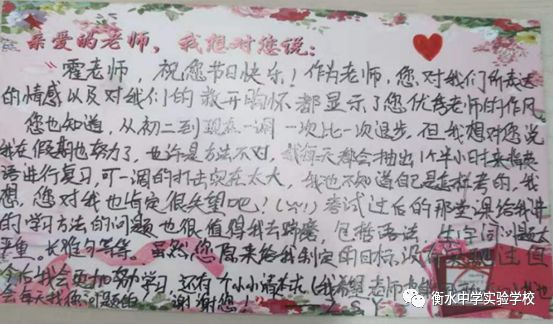 亲爱的老师，我想对您说：
霍老师，祝您节日快乐！作为老师，您对我们所表达
的情感以及对我们的敞开胸怀都显示了您优秀老师的作风
您也知道，从初二到现在一调一次比一次退步，但我想对您说
我在假期也努力了，也许是方法不对，我每天都会抽出1个半小时来把英
语进行复习，可一调的打击实在太大，我也不知道自己是怎样考的，我
想，您对我也肯定很失望吧！考试过后的那堂课给我讲
的学习方法的问题也很值得我去琢磨，包括语法、生字词问题太
严重。长难句等等。虽然您原来给我制定的目标，没有
今后我会更加努力学习，还有个小小请求(我希望老师
会每天找你问题的，谢谢您！
衡水中学实验学校